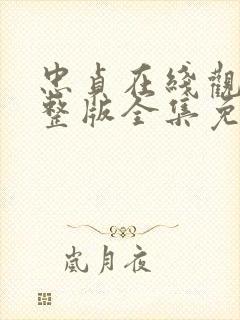 忠貞在綫觀
整版全集免
嵐月夜